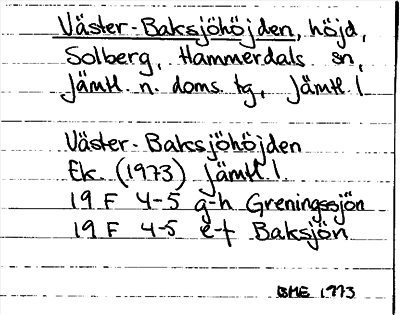 Väster-Baksjöhöjden, höjd,
Solberg, Hammerdals sn,
Jämtl. n. doms. tg, Jämtl. l
Väster-Baksjöhöjden
Ek. (1973) Jämtl. l.
19 F 4-5 g-h Greningssjön
19 F 4-5 e-f Baksjön
BME 1973